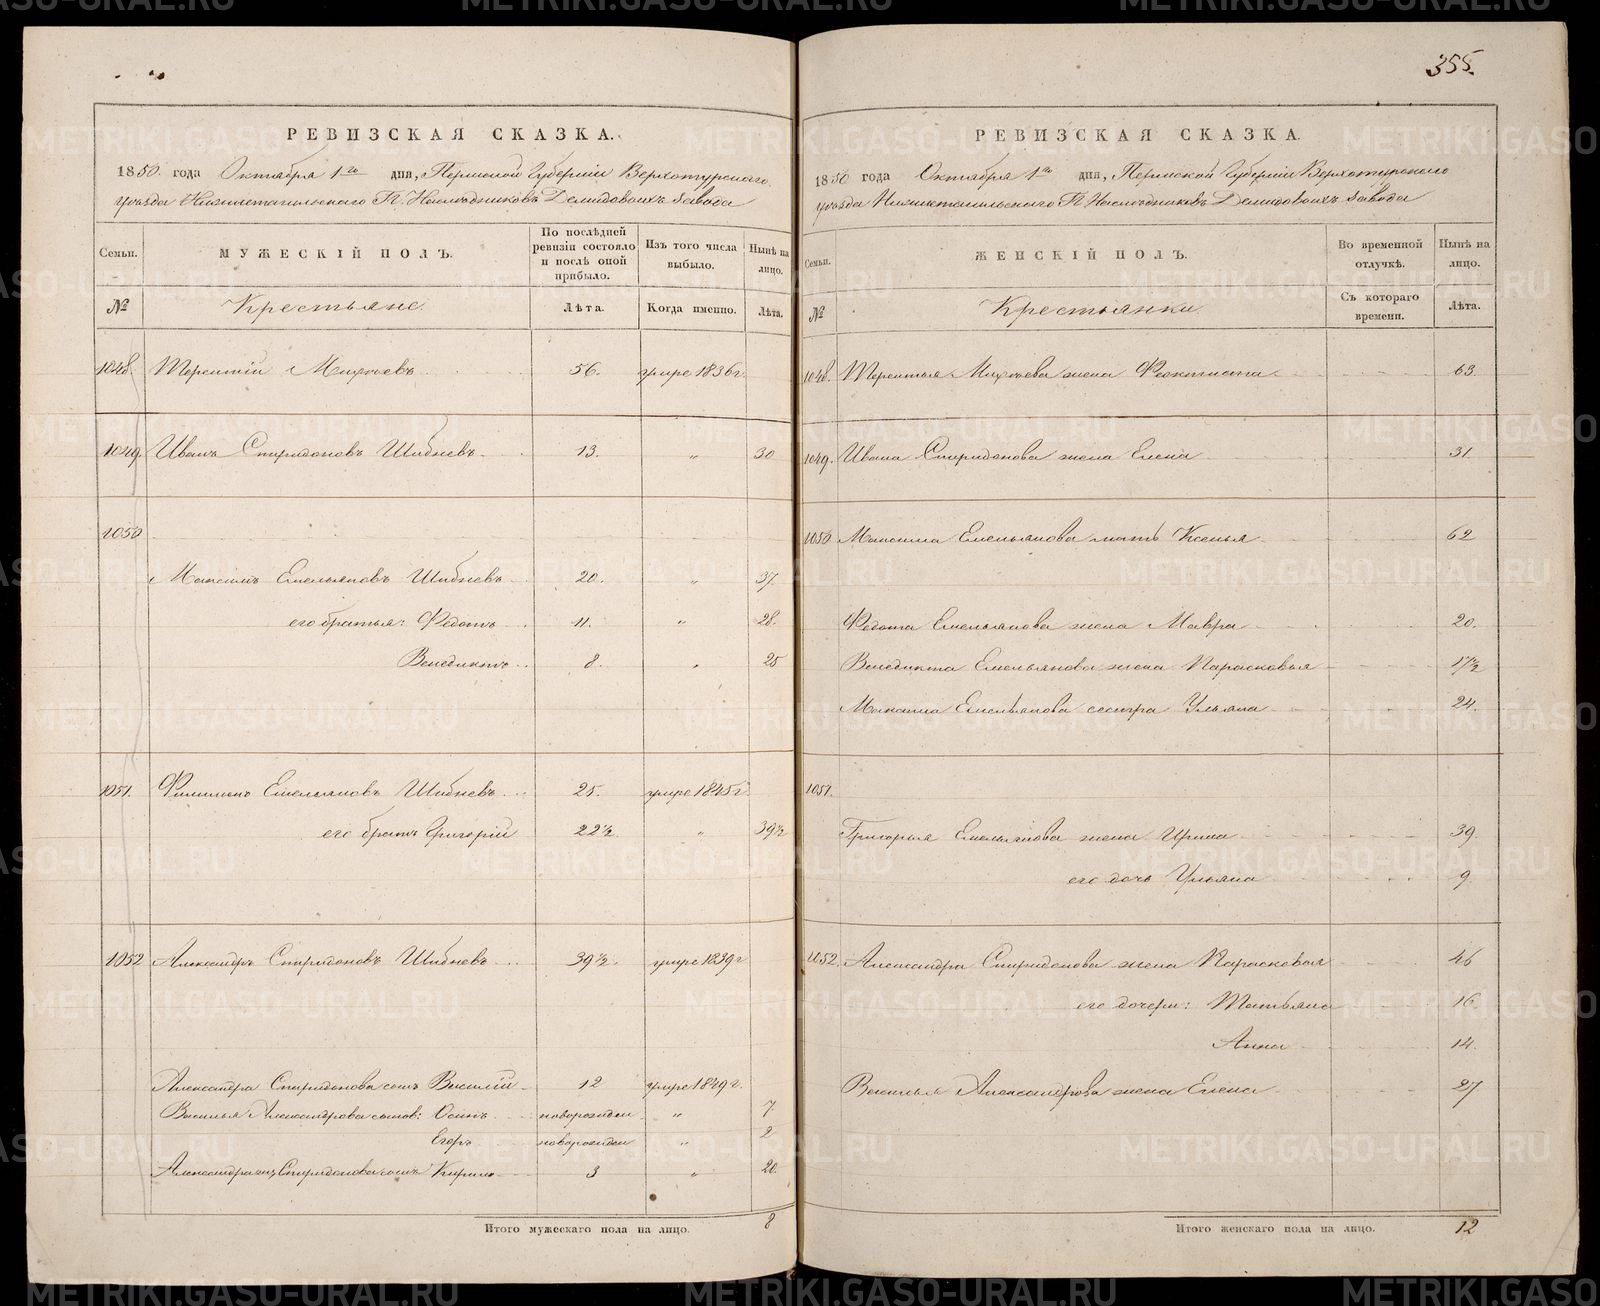 355.
РЕВИЗСКАЯ СКАЗКА.
1850. года Октября 1го дня, Пермской Губерніи Верхотурскаго
уѣзда Нижнетагильскаго Г.г. Наслѣдниковъ Демидовыхъ Завода
Семьи. МУЖЕСКІЙ ПОЛЪ. По послѣдней ревизіи состояло и послѣ оной прибыло. Изъ того числа выбыло. Нынѣ на лицо.
№ Крестьяне. Лѣта. Когда именно. Лѣта.
1048. Терентій Михѣевъ 56. умре 1836 г.
1049. Иванъ Спиридоновъ Шибневъ 13. " 30
1050
Максимъ Емельяновъ Шибневъ 20. " 37.
его братья: Федотъ 11. " 28.
Венедиктъ 8. " 25
1051. Филимонъ Емельяновъ Шибневъ 25. умре 1845 г
его братъ Григорій 22½. " 39½
1052 Александръ Спиридоновъ Шибневъ 39½. умре 1839 г
Александра Спиридонова сынъ Василій 12 умре 1849 г.
Василья Александрова сынов: Осипъ новорожден " 7.
Егоръ новорожден " 2
Александра Спиридонова сынъ Кирило 3 " 20.
Итого мужескаго пола на лицо. 8
РЕВИЗСКАЯ СКАЗКА.
1850 года Октября 1го дня, Пермской Губерніи Верхотурскаго
уѣзда Нижнетагильскаго Г.г. Наслѣдниковъ Демидовыхъ Завода
Семьи. ЖЕНСКІЙ ПОЛЪ. Во временной отлучкѣ. Нынѣ на лицо.
№ Крестьянки. Съ котораго времени. Лѣта.
1048. Терентья Михѣева жена Феоктиста 63.
1049. Ивана Спиридонова жена Елена 31.
1050 Максима Емельянова мать Ксенья 62
Федота Емельянова жена Мавра 20.
Венедикта Емельянова жена Парасковья 17½
Максима Емельянова сестра Ульяна 24.
1051.
Григорья Емельянова жена Ирина 39.
его дочь Ульяна 9.
1052. Александра Спиридонова жена Парасковья 46
его дочери: Татьяна 16.
Анна 14.
Василья Александрова жена Елена 27
Итого женскаго пола на лицо. 12
METRIKI.GASO-URAL.RU